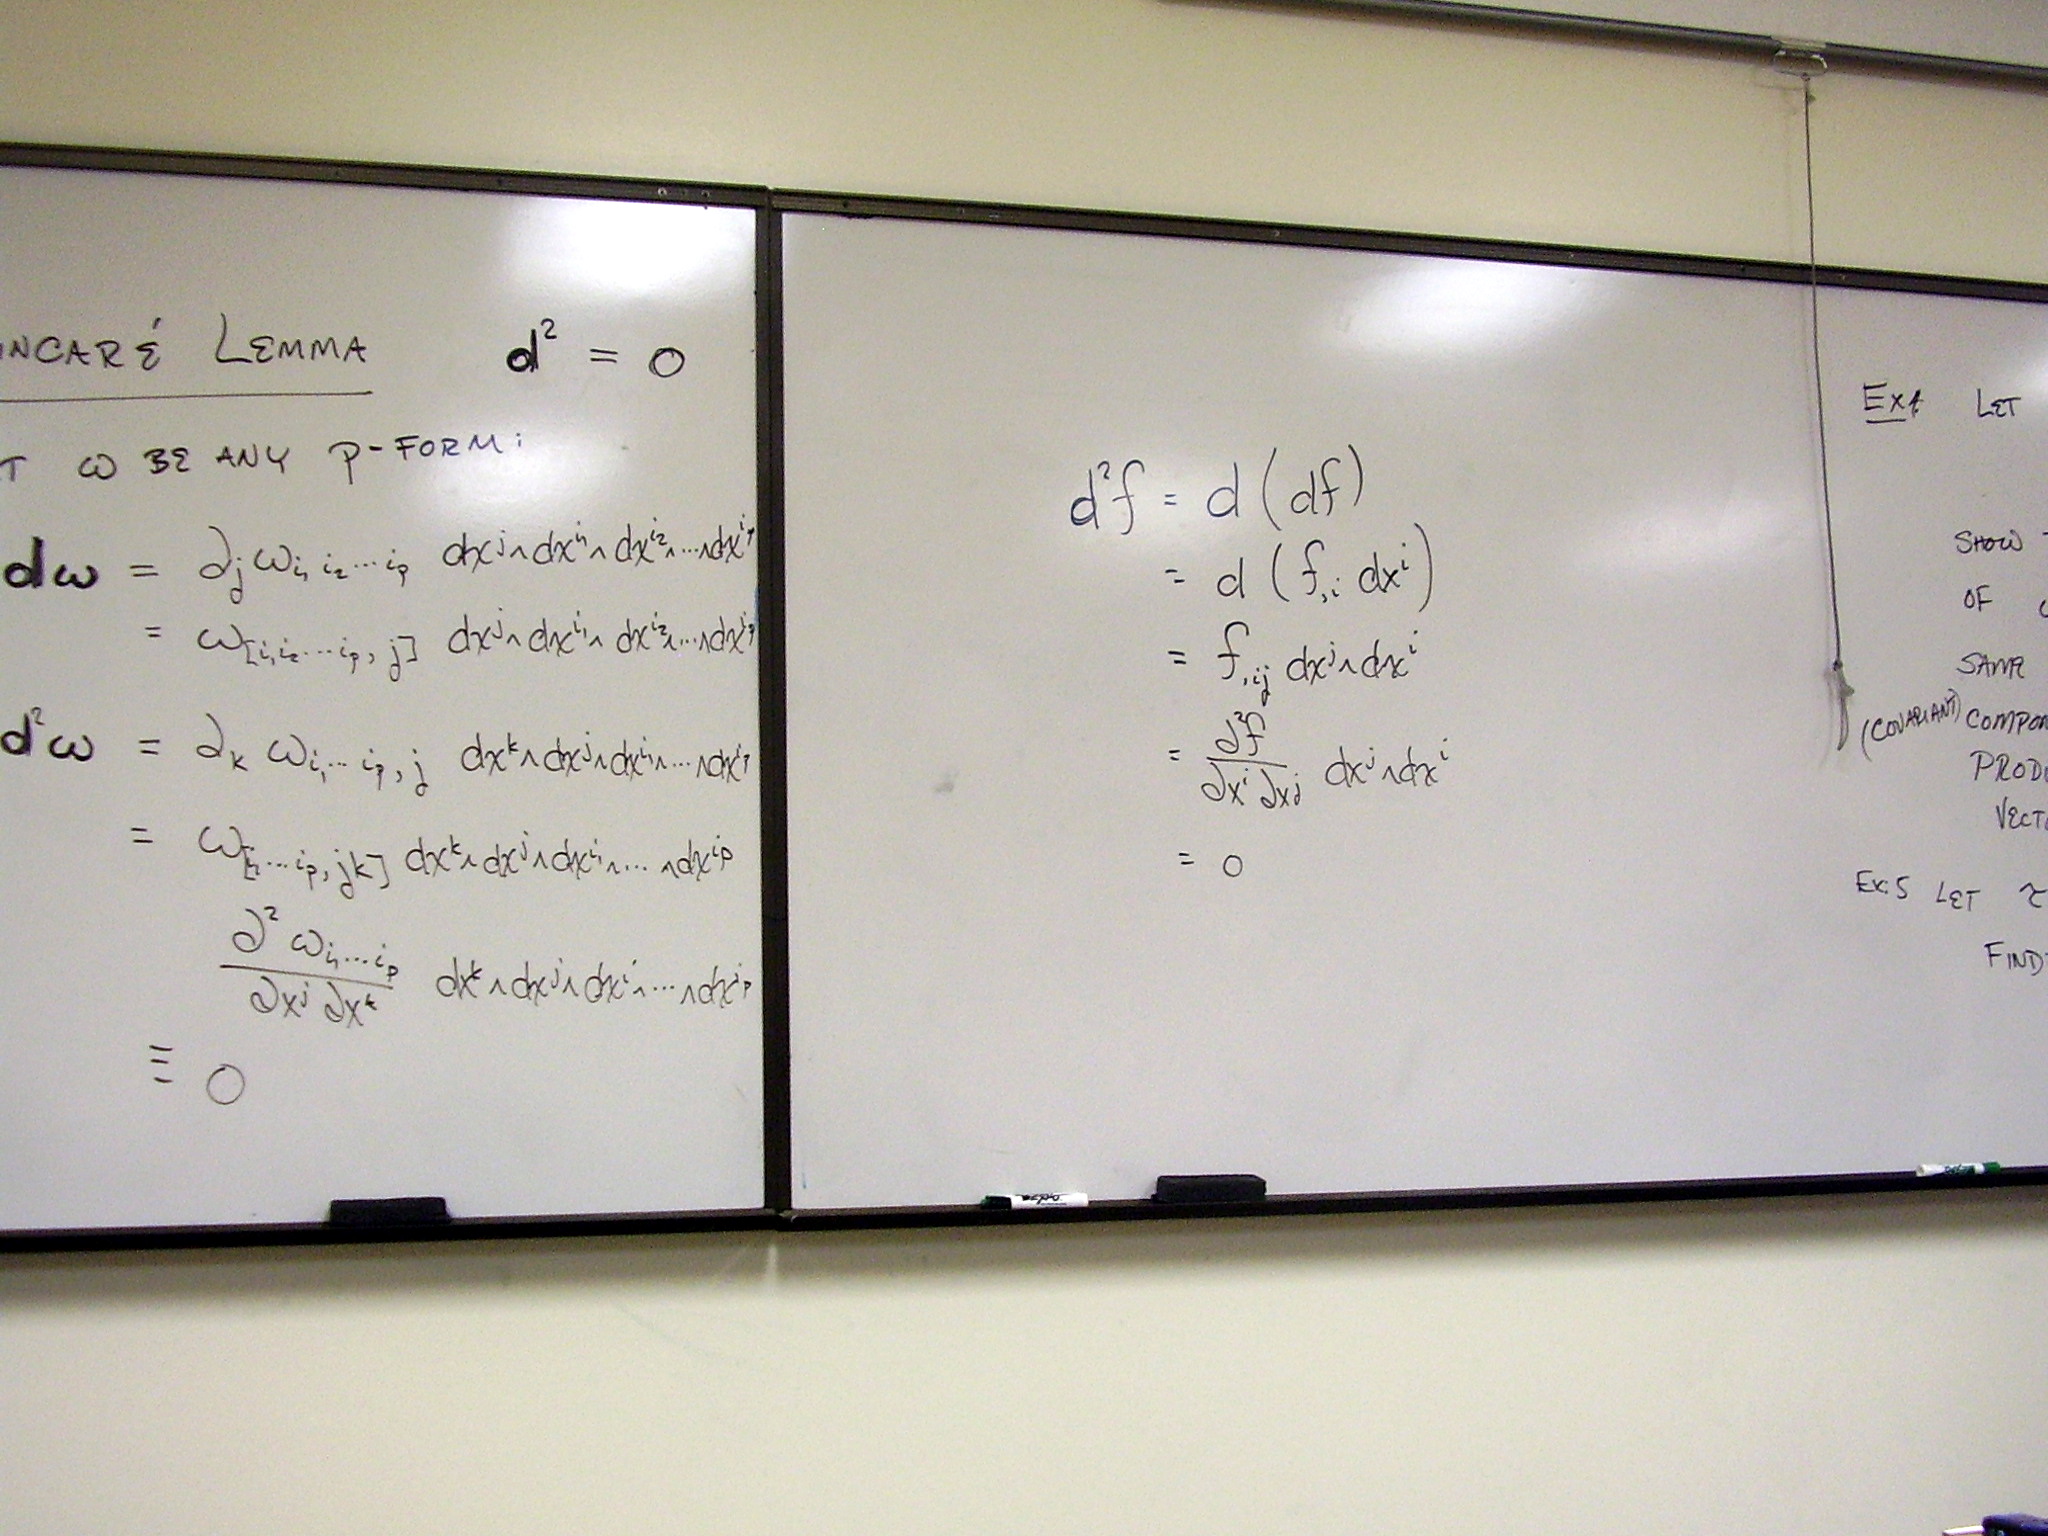 INCARÉ LEMMA d² = 0
T ω BE ANY p-FORM:
dω = ∂_j ω_{i₁ i₂ ⋯ i_p} dx^j ∧ dx^{i₁} ∧ dx^{i₂} ∧ ⋯ ∧ dx^{i_p}
= ω_{[i₁ i₂ ⋯ i_p, j]} dx^j ∧ dx^{i₁} ∧ dx^{i₂} ∧ ⋯ ∧ dx^{i_p}
d²ω = ∂_k ω_{i₁ ⋯ i_p, j} dx^k ∧ dx^j ∧ dx^{i₁} ∧ ⋯ ∧ dx^{i_p}
= ω_{[i₁ ⋯ i_p, jk]} dx^k ∧ dx^j ∧ dx^{i₁} ∧ ⋯ ∧ dx^{i_p}
∂² ω_{i₁ ⋯ i_p} / ∂x^j ∂x^k dx^k ∧ dx^j ∧ dx^{i₁} ∧ ⋯ ∧ dx^{i_p}
≡ 0
d²f = d (df)
= d (f_{,i} dx^i)
= f_{,ij} dx^j ∧ dx^i
= ∂²f / ∂x^i ∂x^j dx^j ∧ dx^i
= 0
Ex 4 LET
SHOW T
OF
SAME
(COVARIANT) COMPON
PRODU
VECTO
Ex: 5 LET τ
FIND